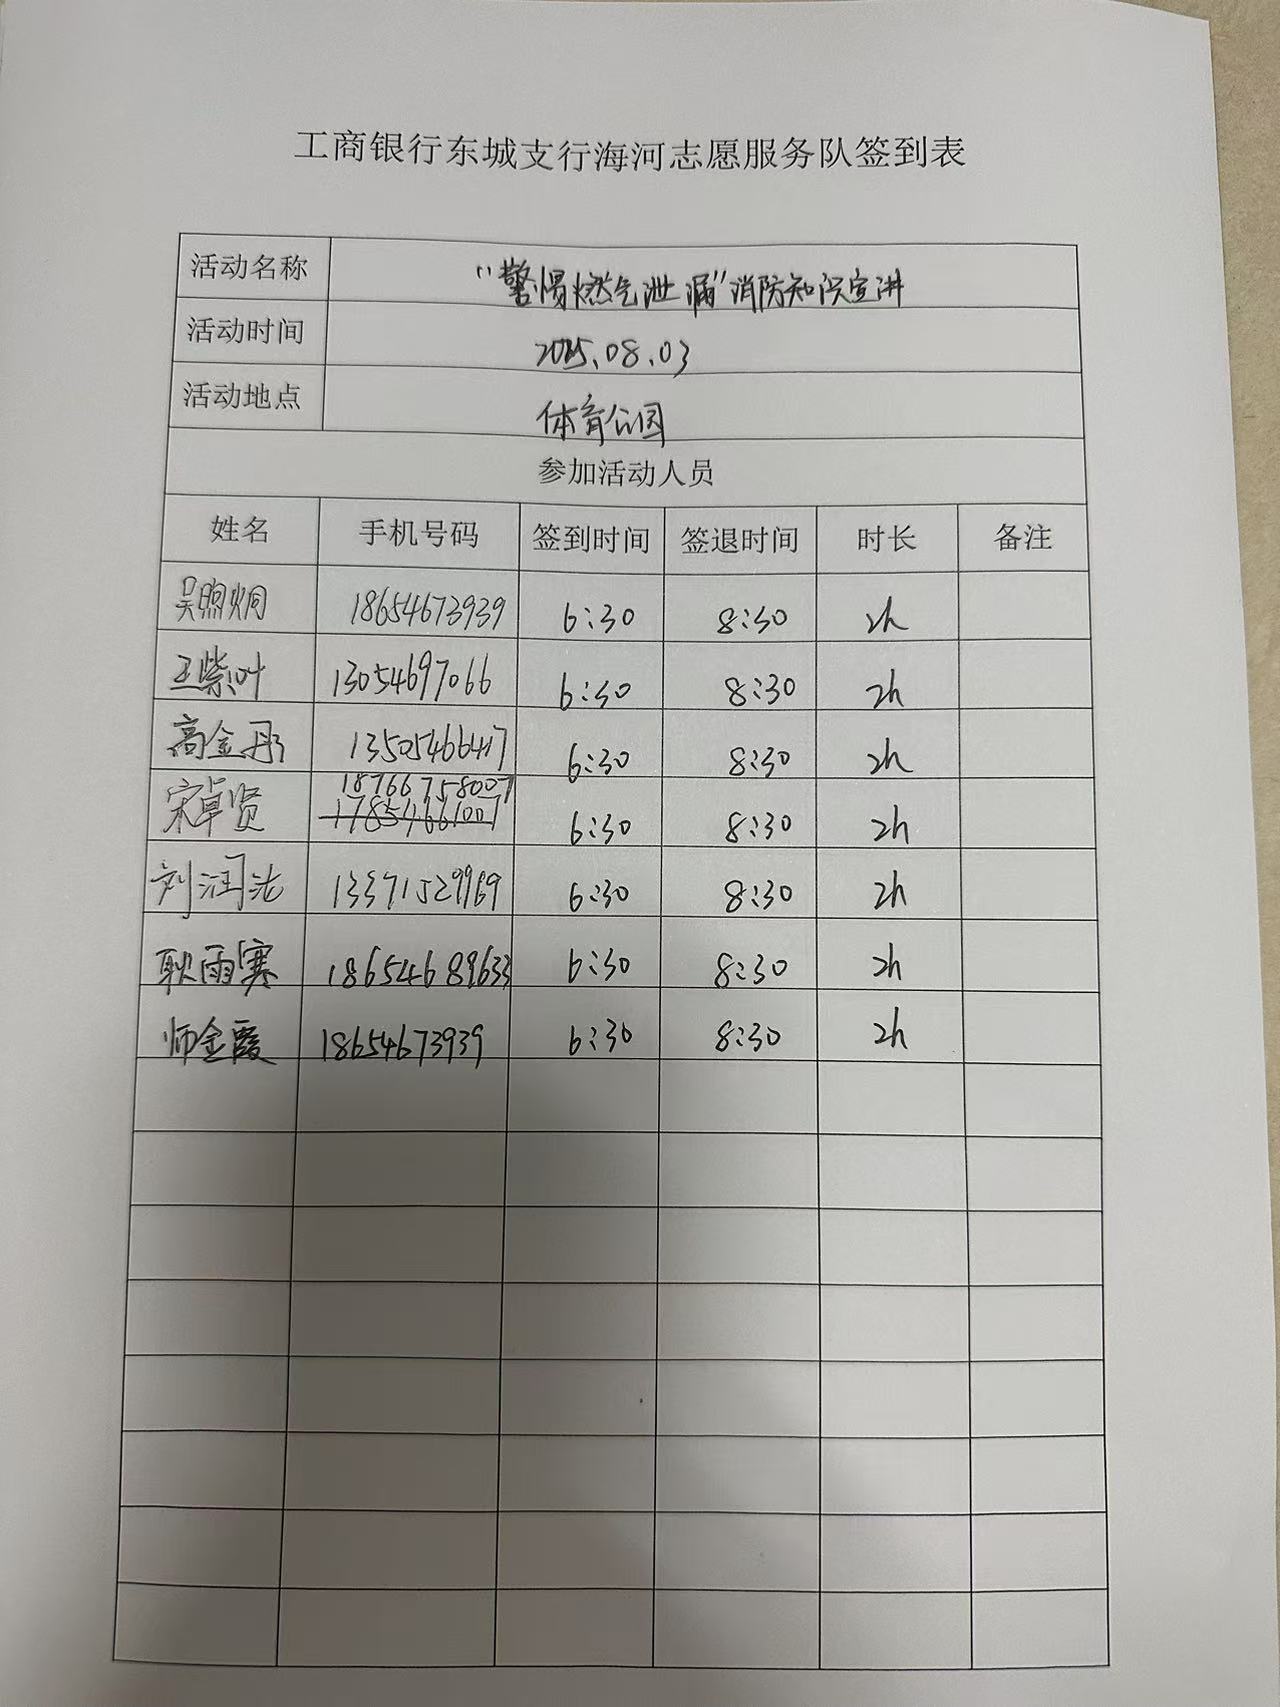 工商银行东城支行海河志愿服务队签到表
活动名称 "警惕燃气泄漏"消防知识宣讲
活动时间 2025.08.03
活动地点 体育公园
参加活动人员
姓名 手机号码 签到时间 签退时间 时长 备注
吴煦炯 18654673939 6:30 8:30 2h
王紫叶 13054697066 6:30 8:30 2h
高金彤 13505466417 6:30 8:30 2h
宋卓贤 18766758007 6:30 8:30 2h
17854661007
刘润沄 13371529969 6:30 8:30 2h
耿雨寒 18654689633 6:30 8:30 2h
师金霞 18654673939 6:30 8:30 2h